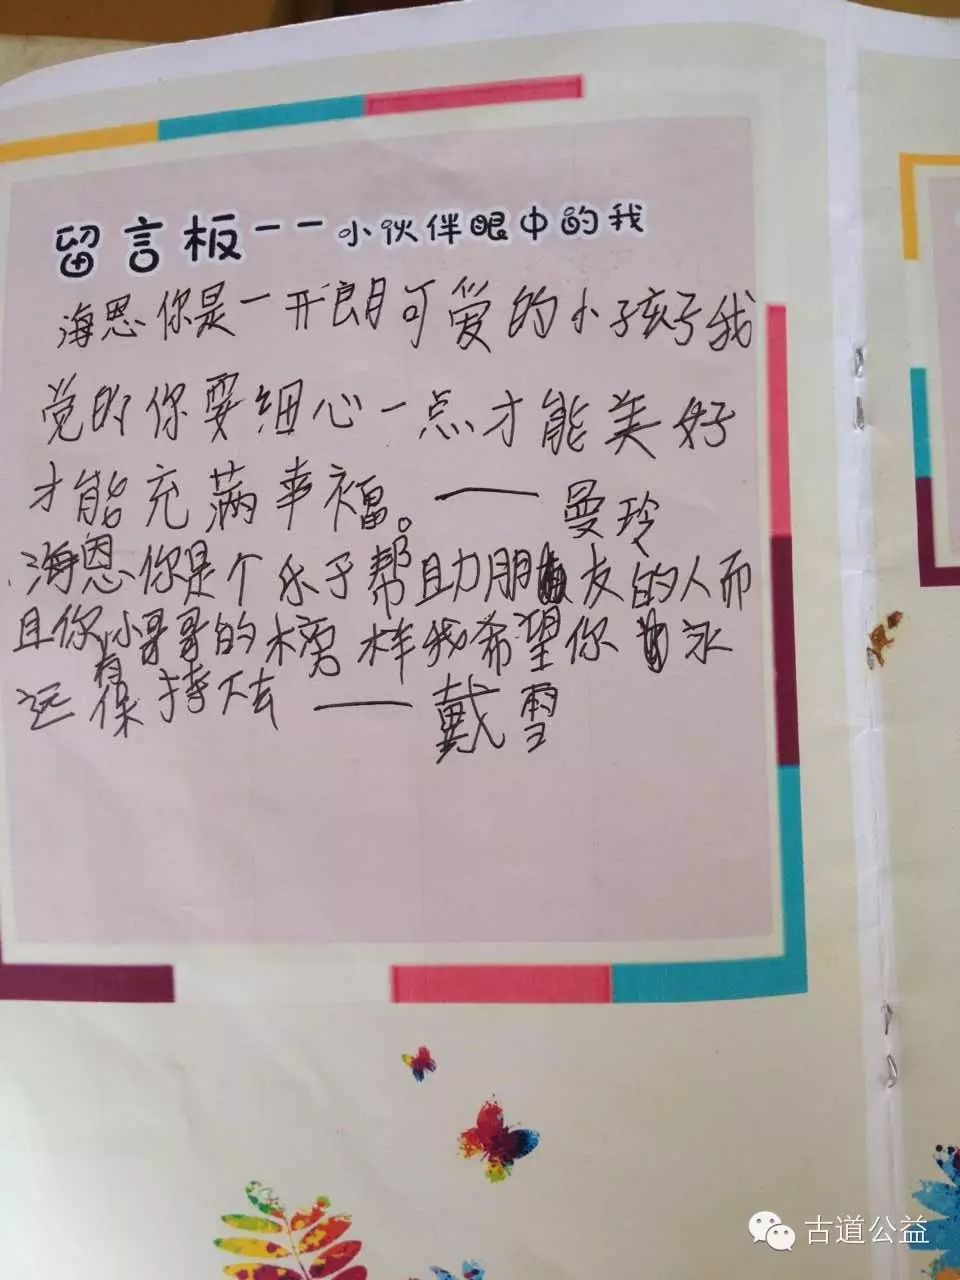 留言板——小伙伴眼中的我
海恩你是一开朗可爱的小孩子我
觉的你要细心一点才能美好
才能充满幸福。——曼玲
海恩你是个乐于帮助朋友的人而
且你有小哥哥的榜样我希望你永
远保持下去——戴雪
古道公益